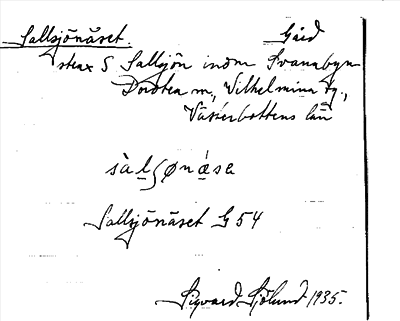 Sallsjönäset. Gård
strax S Sallsjön inom Svanabyn
Dorotea m., Vilhelmina tg.,
Västerbottens län
sàl̠ʃønǽsa
Sallsjönäset G 54
Sigvard Sjölund 1935.